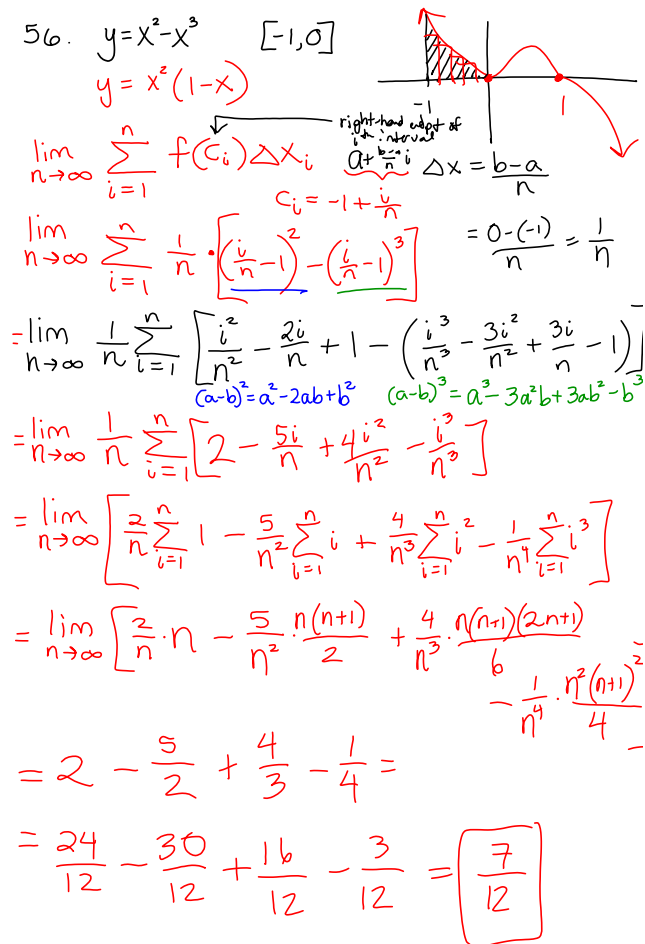 56. y = x² - x³ [-1,0]
y = x²(1-x)
-1 1
right-hand endpt of
ith interval
a + (b-a)/n i
lim n→∞ Σ i=1 n f(c_i) Δx_i
Δx = (b-a)/n
c_i = -1 + i/n
= (0-(-1))/n = 1/n
lim n→∞ Σ i=1 n 1/n · [(i/n - 1)² - (i/n - 1)³]
= lim n→∞ 1/n Σ i=1 n [i²/n² - 2i/n + 1 - (i³/n³ - 3i²/n² + 3i/n - 1)]
(a-b)² = a² - 2ab + b² (a-b)³ = a³ - 3a²b + 3ab² - b³
= lim n→∞ 1/n Σ i=1 n [2 - 5i/n + 4i²/n² - i³/n³]
= lim n→∞ [2/n Σ i=1 n 1 - 5/n² Σ i=1 n i + 4/n³ Σ i=1 n i² - 1/n⁴ Σ i=1 n i³]
= lim n→∞ [2/n · n - 5/n² · n(n+1)/2 + 4/n³ · n(n+1)(2n+1)/6
- 1/n⁴ · n²(n+1)²/4
= 2 - 5/2 + 4/3 - 1/4 =
= 24/12 - 30/12 + 16/12 - 3/12 = 7/12